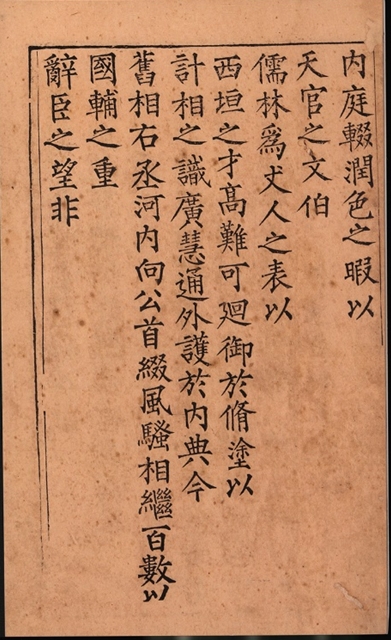 內庭輟潤色之暇以
天官之文伯
儒林爲丈人之表以
西垣之才髙難可廻御於脩塗以
計相之識廣慧通外護於内典今
舊相右丞河内向公首綴風騷相繼百數以
國輔之重
辭臣之望非